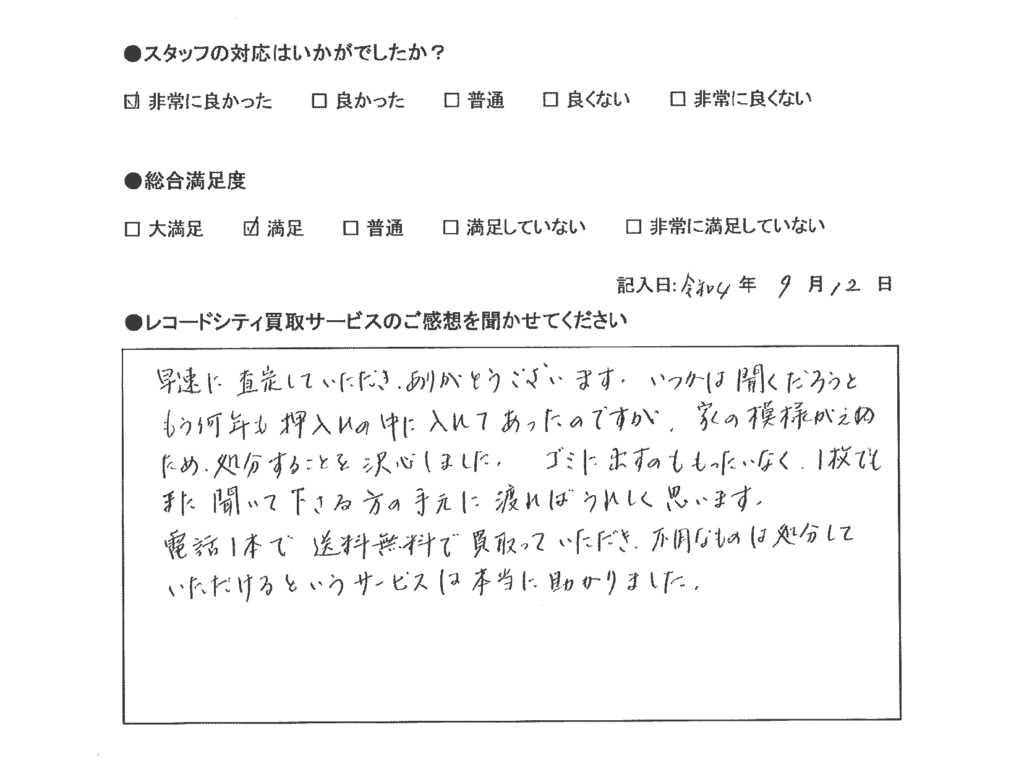 ●スタッフの対応はいかがでしたか？
☑ 非常に良かった　□ 良かった　□ 普通　□ 良くない　□ 非常に良くない
●総合満足度
□ 大満足　☑ 満足　□ 普通　□ 満足していない　□ 非常に満足していない
記入日:令和4年 9月12日
●レコードシティ買取サービスのご感想を聞かせてください
早速に査定していただき、ありがとうございます。いつかは聞くだろうと
もう何年も押入れの中に入れてあったのですが、家の模様がえの
ため、処分することを決心しました。ゴミに出すのももったいなく、1枚でも
また聞いて下さる方の手元に渡ればうれしく思います。
電話1本で送料無料で買取っていただき、不用なものは処分して
いただけるというサービスは本当に助かりました。